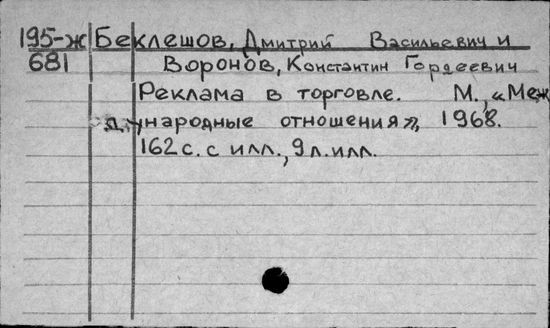 195-ж Беклешов, Дмитрий Васильевич и
681 Воронов, Константин Гордеевич
Реклама в торговле. М., «Меж
дународные отношения», 1968.
162 с. с илл., 9 л. илл.